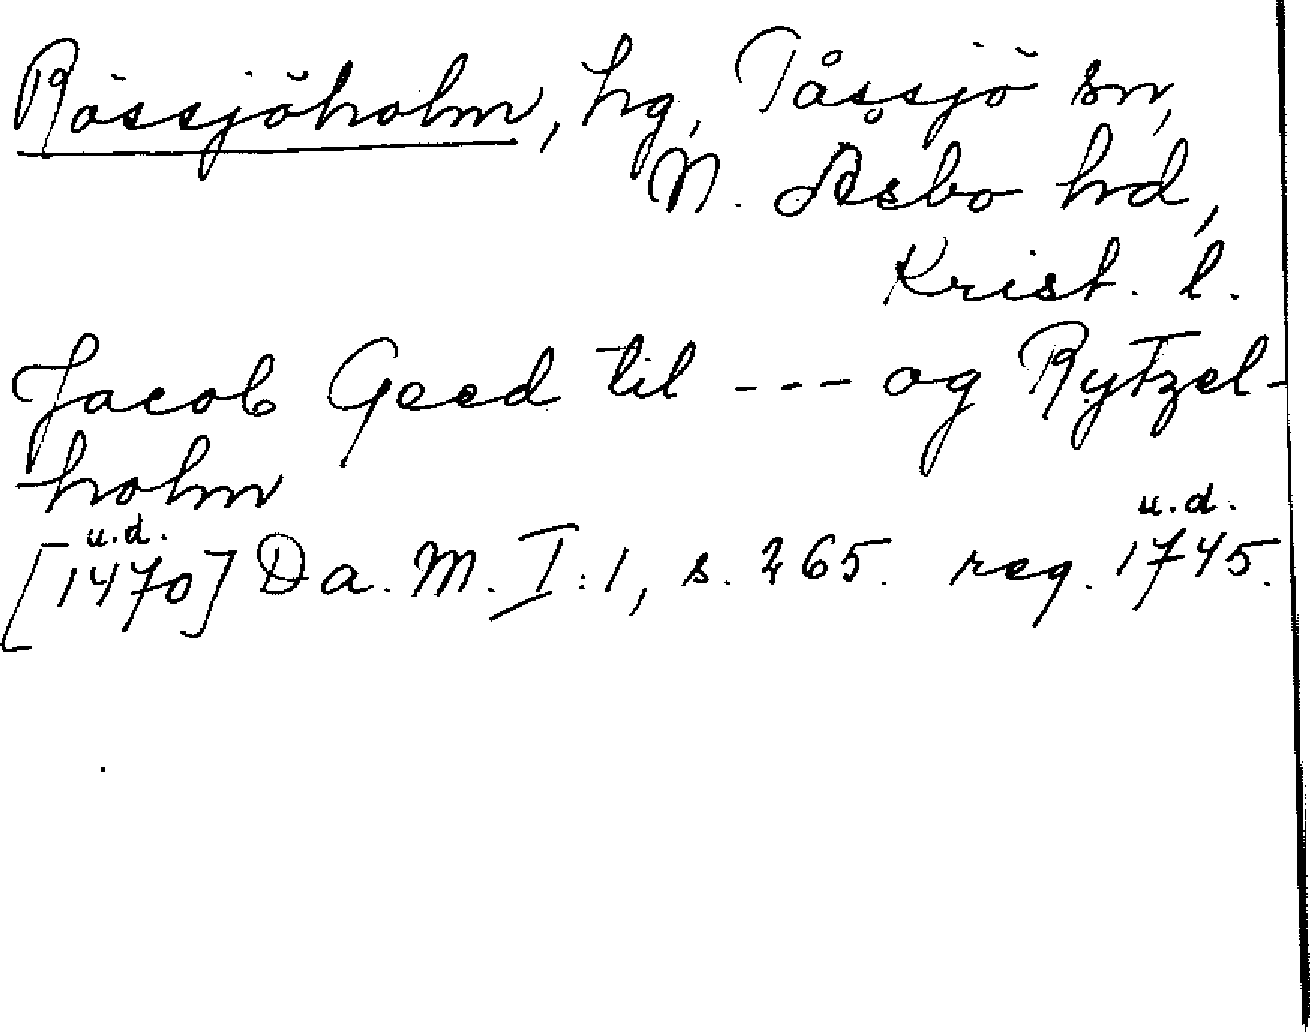 Rössjöholm, hg, Tåssjö sn,
N. Åsbo hd,
Krist. l.
Jacob Geed til --- og Rytzel-
holm
[1470 u.d.] Da. M. I:1, s. 265. reg. 1745 u.d.